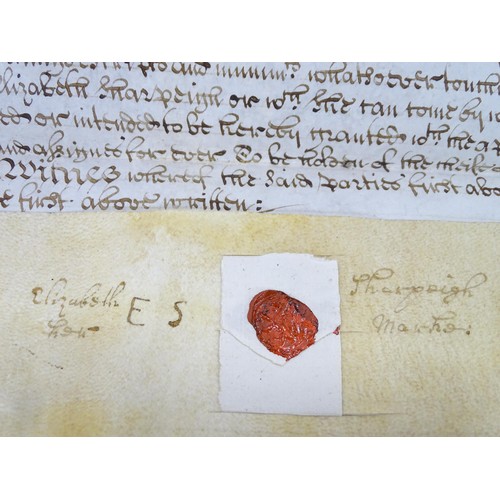 and munimts whatsoever touch
Elizabeth Sharpeigh or wch she can come by
or intended to be hereby granted wth the
and assignes for ever To be holden of the cheife
Witnes whereof the said parties first abo
first above written:
Elizabeth E S Sharpeigh
her Marke: